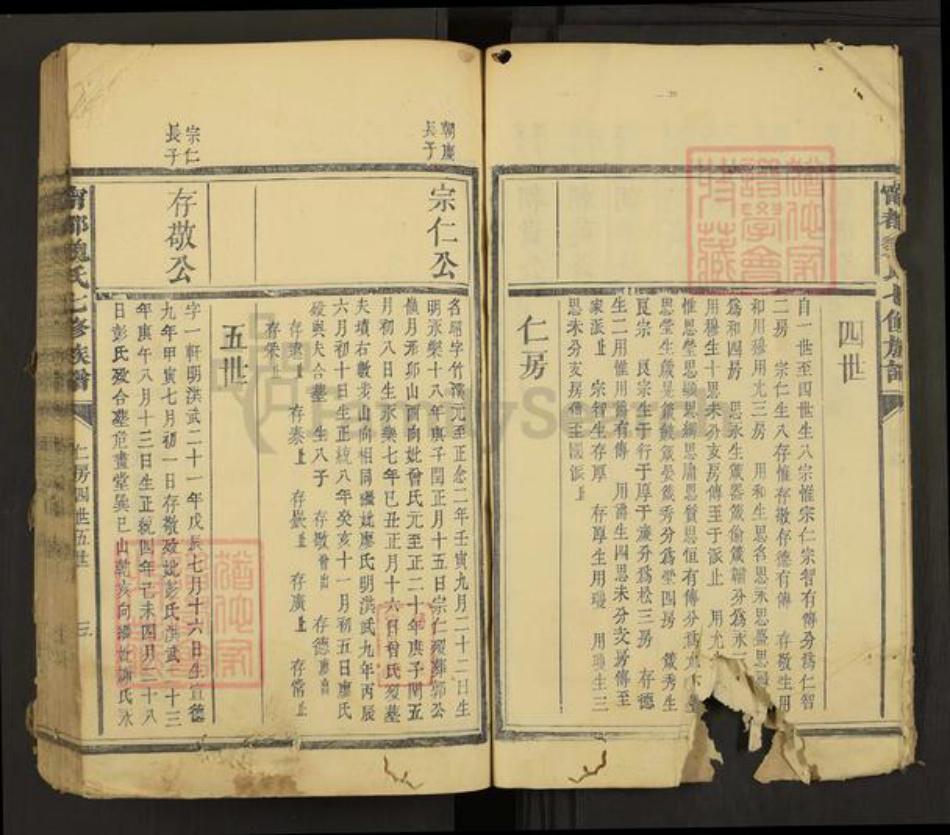 四世
自一世至四世生八宗惟宗仁宗智有傳分爲仁智
二房 宗仁生八存惟存敬存德有傳 存敬生用
和用穆用尤三房 用和生思名思永思盛思
爲和四房 思永生箴器箴倫箴 分爲永
用穆生十思未分支房傳至于派止 用尤
惟思瑩思顯思綱思庸思質思恒有傳分爲
思堂生箴昊箴箴晏箴秀分爲瑩四房 箴秀生
艮宗 艮宗生于行于厚于濂分爲松三房 存德
生二用惟用爵有傳 用爵生四思未分支房傳至
家派止 宗智生存厚 存厚生用瑗 用瑗生三
思未分支房傳至國派止
仁房
朝慶
長子
宗仁公
名昭字竹溪元至正壬寅九月二十二日生
明永樂十八年庚子閏正月十五日宗仁歿葬郭公
嶺月形卯山酉向妣曾氏元至正二十年庚子閏五
月初八日生永樂七年己丑正月十六日曾氏歿墓
夫墳右數步山向相同繼妣廖氏明洪武九年丙辰
六月初十日生正統八年癸亥十一月初五日廖氏
歿與夫合墓 生八子 存敬曾出 存德廖出
存遠止 存泰止 存振止 存廣止 存常止
存榮止
五世
宗仁
長子
存敬公
字一軒明洪武二十一年戊辰七月十六日生宣德
九年甲寅七月初一日存敬歿妣彭氏洪武二十三
年庚午八月十三日生正統四年己未四月二十八
日彭氏歿合墓危畫堂巽巳山乾亥向繼妣謝氏永
甯都魏氏七修族譜
仁房四世五世
三